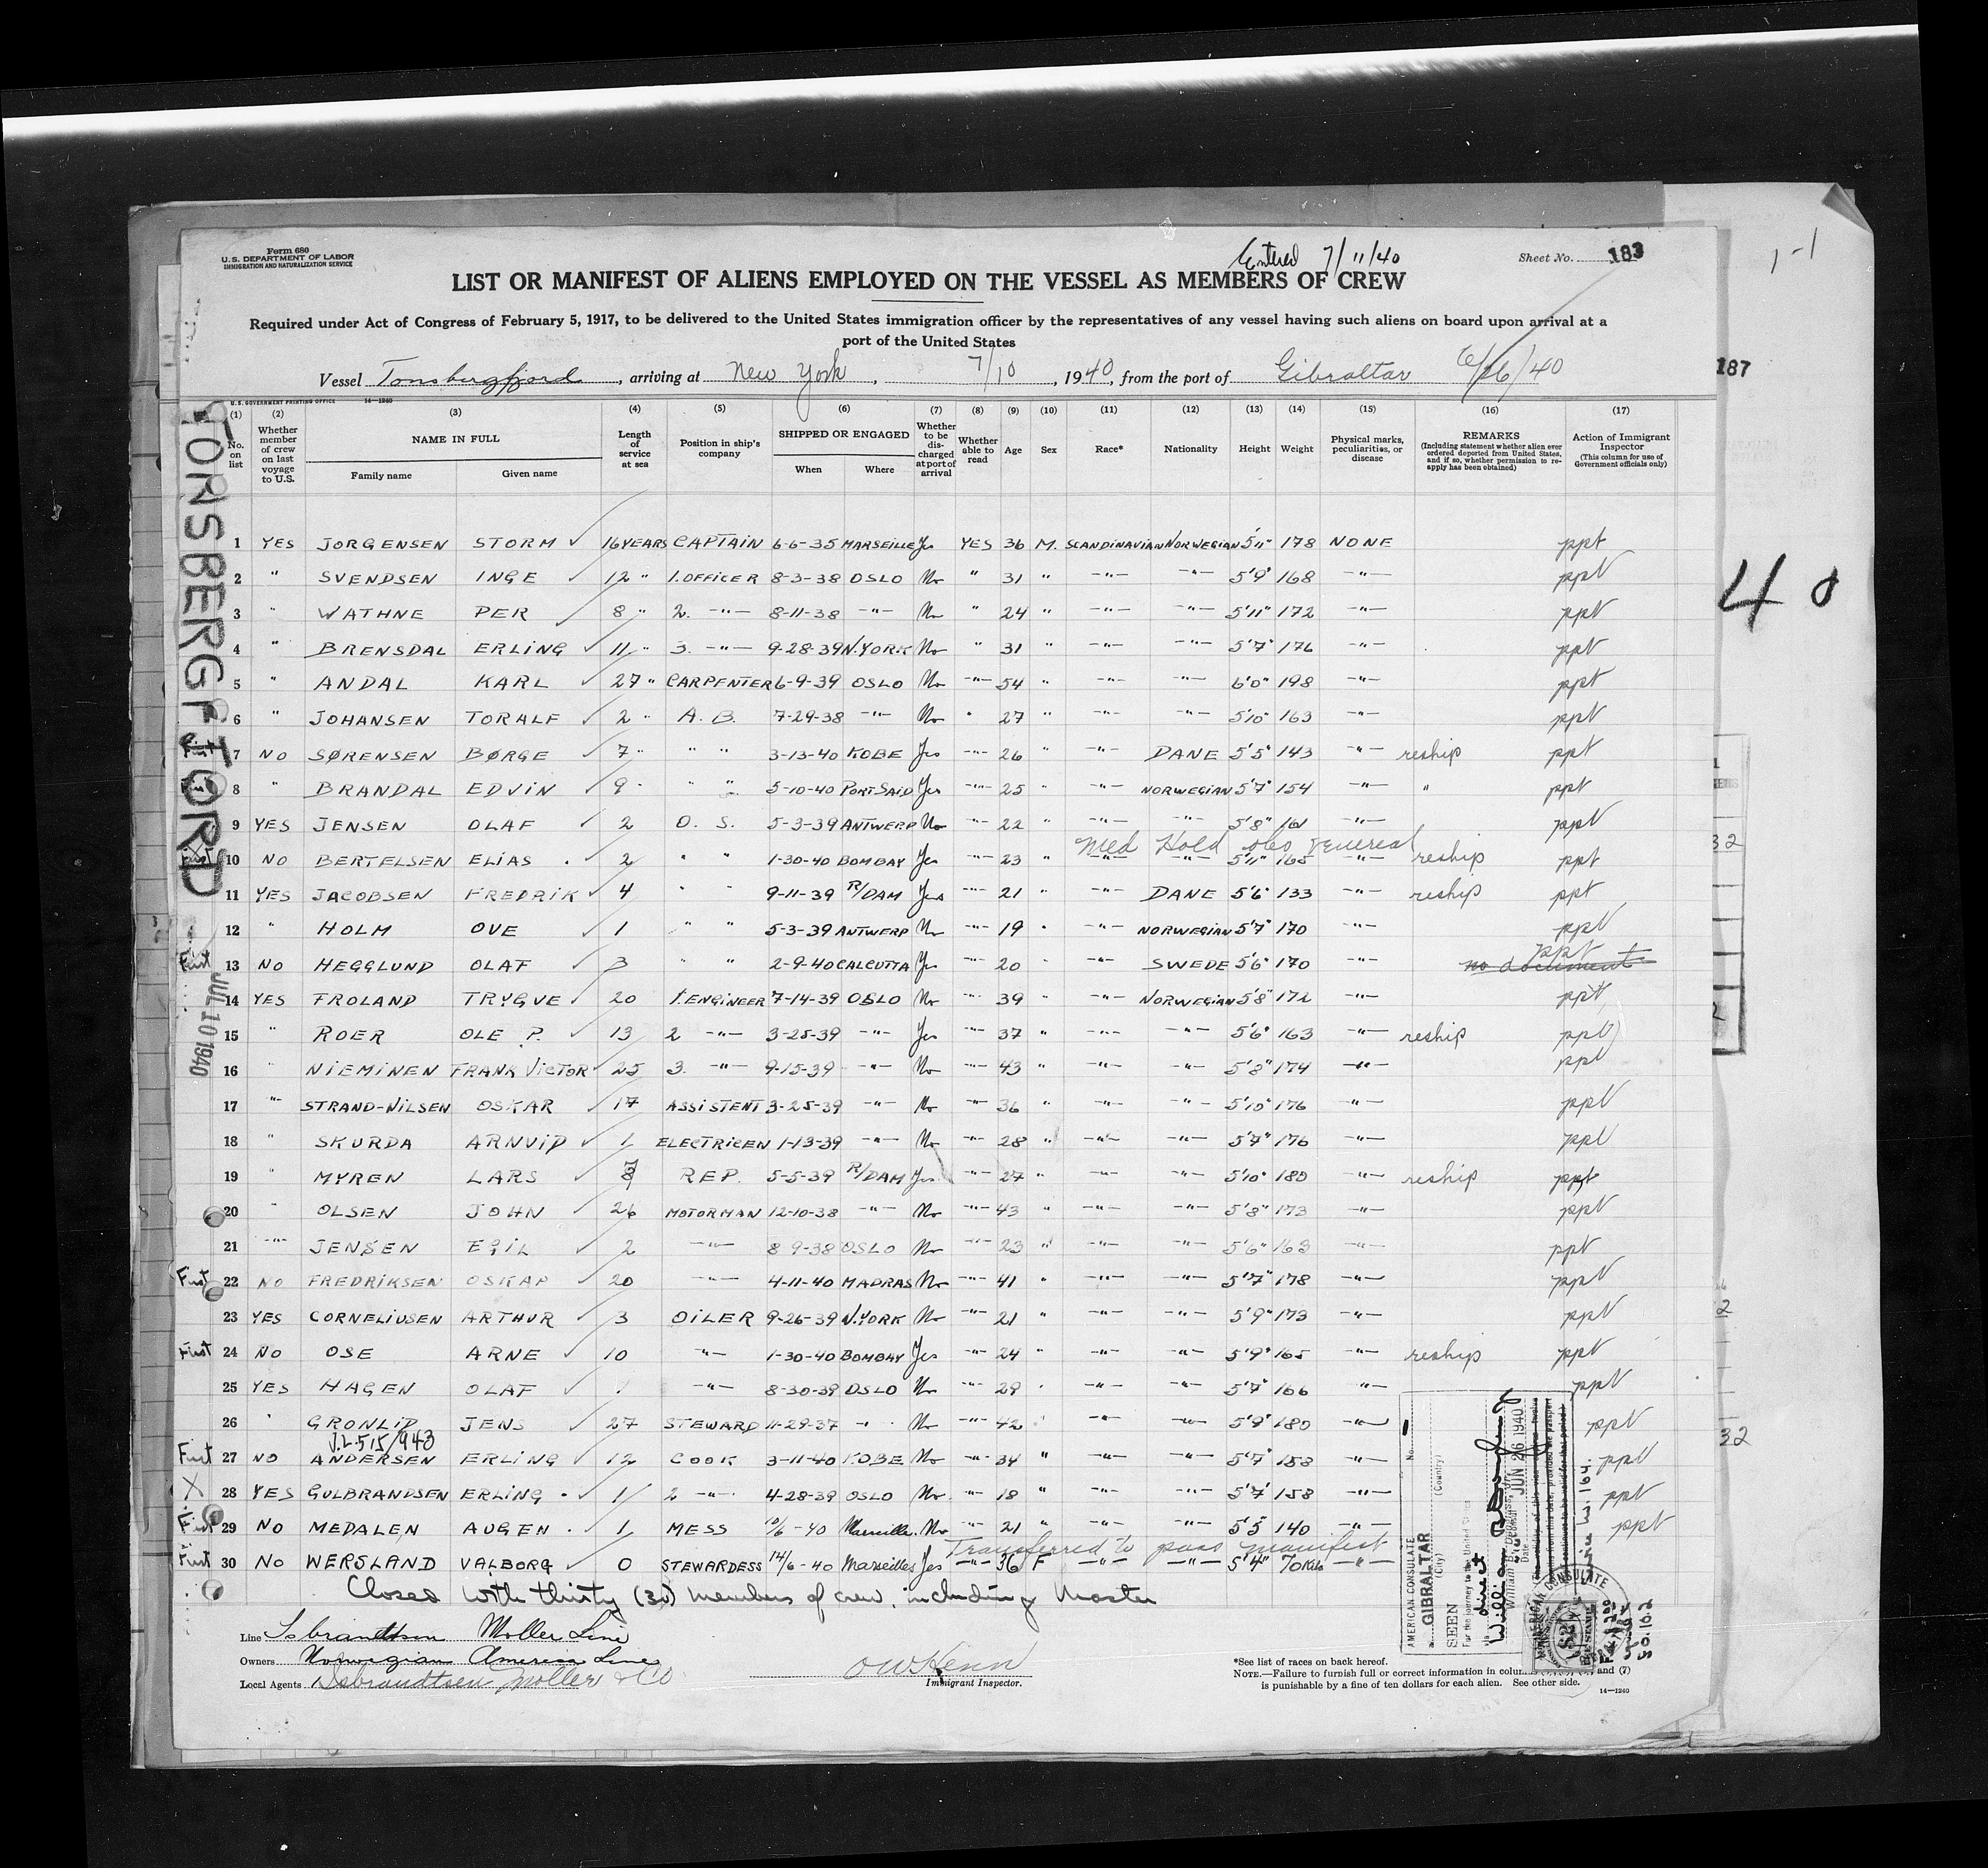 Form 680
U.S. DEPARTMENT OF LABOR
IMMIGRATION AND NATURALIZATION SERVICE
Entered 7/11/40
Sheet No. 183
1-1
LIST OR MANIFEST OF ALIENS EMPLOYED ON THE VESSEL AS MEMBERS OF CREW
Required under Act of Congress of February 5, 1917, to be delivered to the United States immigration officer by the representatives of any vessel having such aliens on board upon arrival at a
port of the United States
Vessel Tonsbergfjord, arriving at New York, 7/10, 1940, from the port of Gibraltar 6/26/40
187
U.S. GOVERNMENT PRINTING OFFICE 14—1240
(1) (2) (3) (4) (5) (6) (7) (8) (9) (10) (11) (12) (13) (14) (15) (16) (17)
No. on list Whether member of crew on last voyage to U.S. NAME IN FULL Family name Given name Length of service at sea Position in ship's company SHIPPED OR ENGAGED When Where Whether to be discharged at port of arrival Whether able to read Age Sex Race* Nationality Height Weight Physical marks, peculiarities, or disease REMARKS (Including statement whether alien ever ordered deported from United States, and if so, whether permission to reapply has been obtained) Action of Immigrant Inspector (This column for use of Government officials only)
TONSBERGFJORD
JUL 10 1940
40
1 YES JORGENSEN STORM ✓ 16 YEARS CAPTAIN 6-6-35 MARSEILLE Yes YES 36 M. SCANDINAVIAN NORWEGIAN 5'11" 178 NONE ppt
2 " SVENDSEN INGE ✓ 12 " 1. OFFICER 8-3-38 OSLO No " 31 " -"- -"- 5'9" 168 -"- ppt
3 " WATHNE PER ✓ 8 " 2. -"- 8-11-38 -"- No " 24 " -"- -"- 5'11" 172 ppt
4 " BRENSDAL ERLING ✓ 11 " 3. -"- 9-28-39 N.YORK No " 31 " -"- -"- 5'7" 176 -"- ppt
5 " ANDAL KARL ✓ 27 " CARPENTER 6-9-39 OSLO No -"- 54 " -"- -"- 6'0" 198 -"- ppt
6 " JOHANSEN TORALF ✓ 2 " A. B. 7-29-38 -"- No " 27 " -"- -"- 5'10" 163 -"- ppt
First 7 NO SØRENSEN BØRGE ✓ 7 " " " 3-13-40 KOBE Yes -"- 26 " -"- DANE 5'5" 143 -"- reship ppt
8 " BRANDAL EDVIN ✓ 9 " " " 5-10-40 PORT SAID Yes -"- 25 " -"- NORWEGIAN 5'7" 154 -"- " ppt
9 YES JENSEN OLAF ✓ 2 O. S. 5-3-39 ANTWERP No -"- 22 " -"- -"- 5'8" 161 -"- ppt
Med Hold obs venereal
10 NO BERTELSEN ELIAS . ✓ 2 " " 1-30-40 BOMBAY Yes -"- 23 " -"- -"- 5'11" 165 -"- reship ppt
11 YES JACOBSEN FREDRIK ✓ 4 " " 9-11-39 R/DAM Yes -"- 21 " -"- DANE 5'6" 133 -"- reship ppt
12 " HOLM OVE ✓ 1 " " 5-3-39 ANTWERP No -"- 19 " -"- NORWEGIAN 5'7" 170 -"- ppt
First 13 NO HEGGLUND OLAF ✓ 3 " " 2-9-40 CALCUTTA Yes -"- 20 " -"- SWEDE 5'6" 170 -"- no document ppt
14 YES FROLAND TRYGVE ✓ 20 1. ENGINEER 7-14-39 OSLO No -"- 39 " -"- NORWEGIAN 5'8" 172 -"- ppt
15 " ROER OLE P. ✓ 13 2 -"- 3-25-39 -"- Yes -"- 37 " -"- -"- 5'6" 163 -"- reship ppt
16 " NIEMINEN FRANK VICTOR ✓ 25 3. -"- 9-15-39 -"- No -"- 43 " -"- -"- 5'8" 174 -"- ppt
17 -"- STRAND-NILSEN OSKAR ✓ 17 ASSISTENT 3-25-39 -"- No -"- 36 " -"- -"- 5'10" 176 -"- ppt
18 " SKURDA ARNVID ✓ 1 ELECTRICEN 1-13-39 -"- No -"- 28 " -"- -"- 5'7" 176 -"- ppt
19 " MYREN LARS ✓ REP. 5-5-39 R/DAM Yes -"- 27 " -"- -"- 5'10" 180 -"- reship ppt
20 " OLSEN JOHN ✓ 26 MOTORMAN 12-10-38 -"- No -"- 43 " -"- -"- 5'8" 173 -"- ppt
21 -"- JENSEN EGIL ✓ 2 -"- 8 9-38 OSLO No -"- 23 " -"- -"- 5'6" 163 -"- ppt
First 22 NO FREDRIKSEN OSKAR ✓ 20 -"- 4-11-40 MADRAS No -"- 41 " -"- -"- 5'7" 178 -"- ppt
23 YES CORNELIUSEN ARTHUR ✓ 3 OILER 9-26-39 N.YORK No -"- 21 " -"- -"- 5'9" 173 -"- ppt
First 24 NO OSE ARNE ✓ 10 -"- 1-30-40 BOMBAY Yes -"- 24 " -"- -"- 5'9" 165 -"- reship ppt
25 YES HAGEN OLAF ✓ -"- 8-30-39 OSLO No -"- 29 " -"- -"- 5'7" 166 -"- ppt
26 " GRONLID JENS ✓ 27 STEWARD 11-29-37 -"- No -"- 42 " -"- -"- 5'9" 180 -"- ppt
V.L. 515/943
First 27 NO ANDERSEN ERLING ✓ 12 COOK 3-11-40 KOBE No -"- 34 " -"- -"- 5'7" 158 -"- ppt
X 28 YES GULBRANDSEN ERLING . ✓ 1 2 -"- 4-28-39 OSLO No -"- 18 " -"- -"- 5'7" 158 -"- ppt
First 29 NO MEDALEN AUGEN . ✓ 1 MESS 10/6-40 Marseilles No -"- 21 " -"- -"- 5'5 140 -"- ppt
Transferred to pass manifest
First 30 NO WERSLAND VALBORG ✓ 0 STEWARDESS 14/6-40 Marseilles Yes -"- 36 F -"- -"- 5'4" 70 Kilo -"-
Closed with thirty (30) members of crew, including Master
Line Isbrandtsen Moller Line
Owners Norwegian America Line
Local Agents Isbrandtsen Moller & Co
Immigrant Inspector.
AMERICAN CONSULATE
GIBRALTAR
(City) (Country)
No. 1
SEEN
For the journey to the United States
via direct
JUN 26 1940
Date
Service No. 164.
*See list of races on back hereof.
NOTE.—Failure to furnish full or correct information in columns and (7)
is punishable by a fine of ten dollars for each alien. See other side.
14—1240
32
32